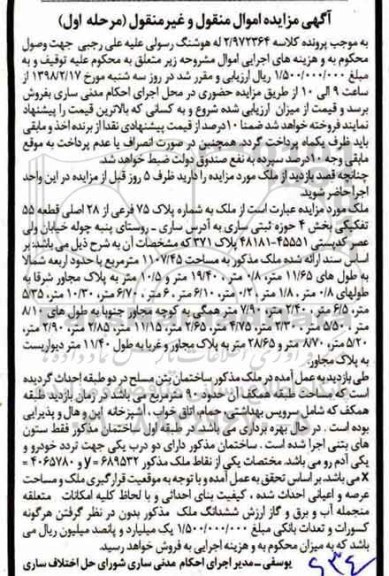 آگهی مزایده اموال منقول و غیرمنقول (مرحله اول)
به موجب پرونده کلاسه ۲/۹۷۲۳۶۴ له هوشنگ رسولی علیه علی رجبی جهت وصول
محکوم به و هزینه های اجرایی اموال مشروحه زیر متعلق به محکوم علیه توقیف و به
مبلغ ۱/۵۰۰/۰۰۰/۰۰۰ ریال ارزیابی و مقرر شد در روز سه شنبه مورخ ۱۳۹۸/۲/۱۷ از
ساعت ۹ الی ۱۰ از طریق مزایده حضوری در محل اجرای احکام مدنی ساری بفروش
برسد و قیمت از میزان ارزیابی شده شروع و به کسانی که بالاترین قیمت را پیشنهاد
نمایند فروخته خواهد شد ضمنا ۱۰درصد از قیمت پیشنهادی نقدا از برنده اخذ و مابقی
باید ظرف یکماه پرداخت گردد همچنین در صورت انصراف یا عدم پرداخت به موقع
مابقی وجه ۱۰درصد سپرده به نفع صندوق دولت ضبط خواهد شد.
چنانچه قصد بازدید از ملک مورد مزایده را دارید ظرف ۵ روز قبل از مزایده در این واحد
اجرا حاضر شوید.
ملک مورد مزایده عبارت است از ملک به شماره پلاک ۷۵ فرعی از ۲۸ اصلی قطعه ۵۵
تفکیکی بخش ۴ حوزه ثبتی ساری به آدرس ساری - روستای پنبه چوله خیابان ولی
عصر کدپستی ۴۵۵۵۱-۴۸۱۸۱ پلاک ۳۷۱ که مشخصات آن به شرح ذیل می باشد: بر
اساس سند ارائه شده ملک مذکور به مساحت ۱۱۰۷/۴۵ مترمربع با حدود اربعه شمالا
به طول های ۱۱/۶۵ متر، ۰/۸۰ متر، ۱۹/۴۰ متر و ۱۰/۵ متر به پلاک مجاور شرقا به
طولهای ۰/۸ متر، ۱/۸۰ متر، ۰/۲ متر، ۶/۱۰ متر، ۶ متر، ۶/۷۰ متر، ۱۰/۳۰ متر، ۵/۳۵
متر، ۶/۵ متر، ۲/۴۰ متر و ۷/۹۰ متر همگی به کوچه مجاور جنوبا به طول های ۸/۱۰
متر، ۵/۵۰ متر، ۳/۳۰ متر، ۴/۷۵ متر، ۲/۶۵ متر، ۱۱/۱۵ متر، ۲/۸۵ متر، ۲/۹۰ متر،
۵/۲۰ متر، ۸/۷۰ متر و ۲۸/۶۵ متر به پلاک مجاور و غربا به طول ۱۱/۴۰ متر دیواریست
به پلاک مجاور.
طی بازدید به عمل آمده در ملک مذکور ساختمان بتن مسلح در دو طبقه احداث گردیده
است که مساحت طبقه همکف آن حدود ۹۰ مترمربع می باشد در زمان بازدید طبقه
همکف که شامل سرویس بهداشتی، حمام، اتاق خواب، آشپزخانه اپن و هال و پذیرایی
بوده است. در حال بهره برداری می باشد. در طبقه اول ساختمان مذکور فقط ستون
های بتنی اجرا شده است. ساختمان مذکور دارای دو درب یکی جهت تردد خودرو و
یکی آدم رو می باشد. مختصات یکی از نقاط ملک مذکور ۶۸۹۵۳۲ = y و ۴۰۶۵۷۸۰ =
X می باشد. بر اساس تحقق به عمل آمده و با توجه به موقعیت قرارگیری ملک و مساحت
عرصه و اعیانی احداث شده، کیفیت بنای احداثی و با لحاظ کلیه امکانات متعلقه
منجمله آب و برق و گاز ارزش ششدانگ ملک مذکور بدون در نظر گرفتن هرگونه
کسورات و تعدات بانکی مبلغ ۱/۵۰۰/۰۰۰/۰۰۰ یک میلیارد و پانصد میلیون ریال می
باشد که به میزان محکوم به و هزینه اجرایی به فروش خواهد رسید.
یوسفی - مدیر اجرای احکام مدنی ساری شورای حل اختلاف ساری